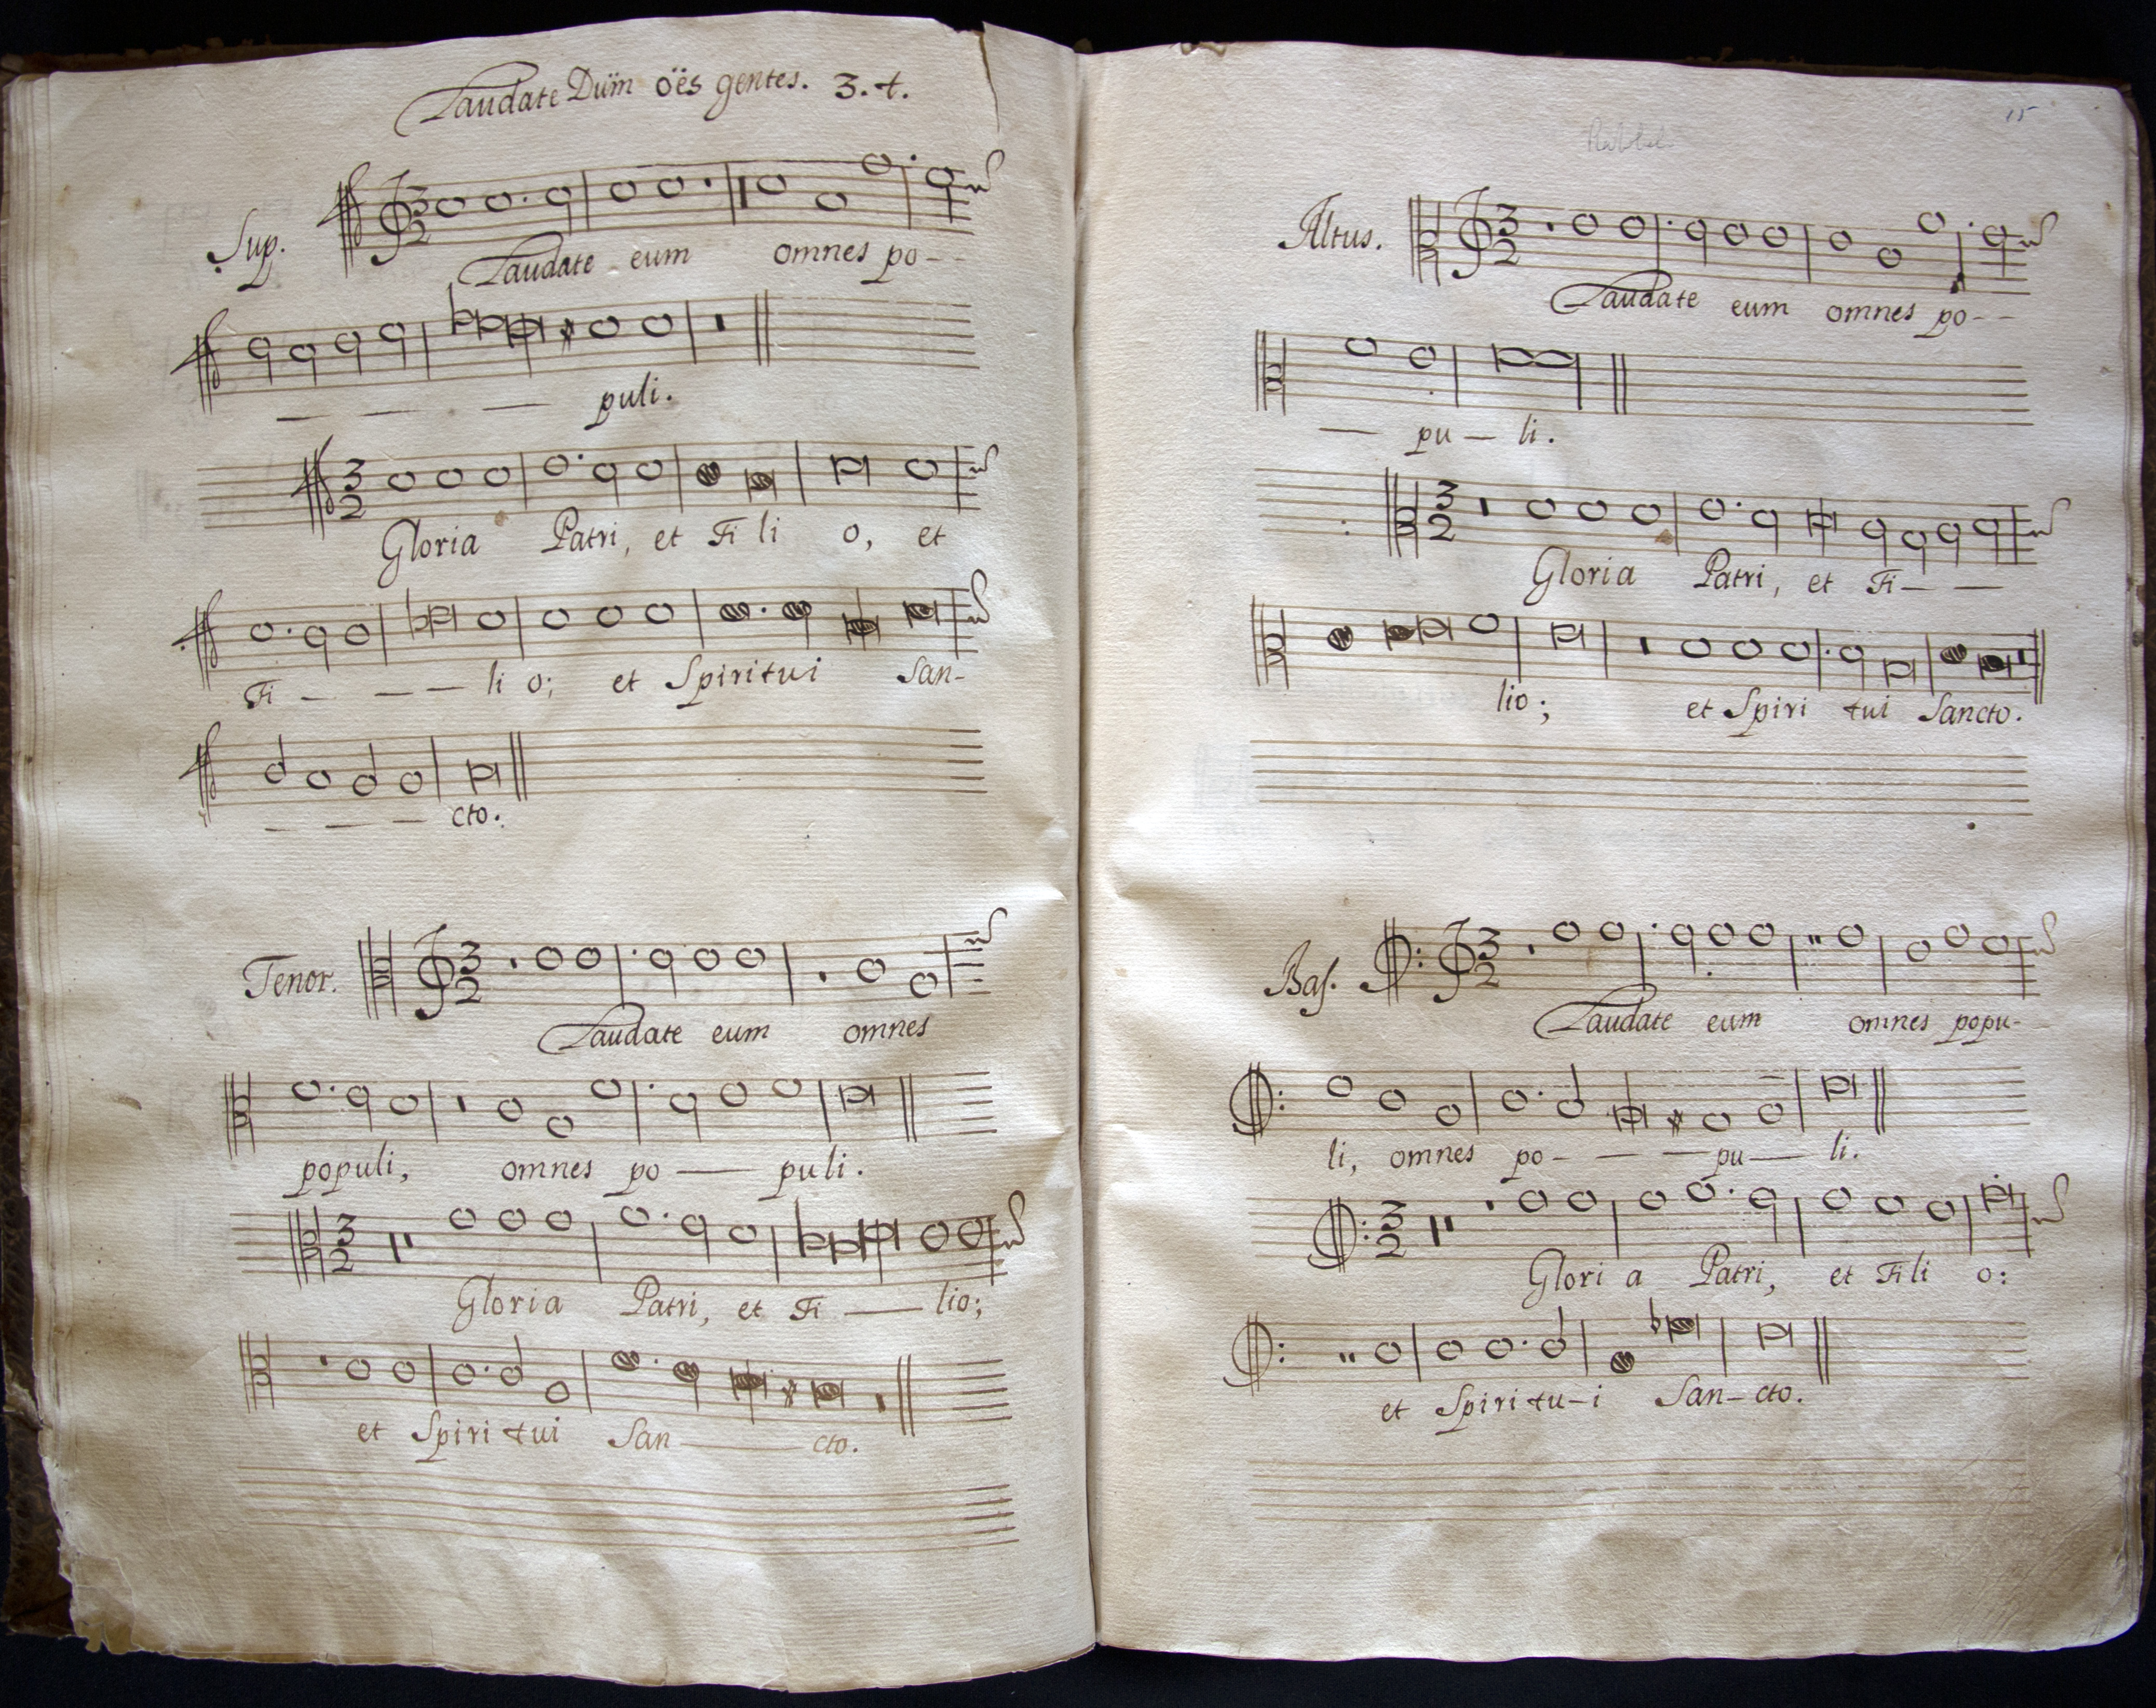 Laudate Dūm ōēs gentes. 3. t.
Sup.
3
2
Laudate eum omnes po--
— — — puli.
3
2
Gloria Patri, et Fi li o, et
Fi — — — li o; et Spiritui San-
— — — cto.
Tenor.
3
2
Laudate eum omnes
populi, omnes po — puli.
3
2
Gloria Patri, et Fi — lio;
et Spiri tui San — cto.
15
Altus.
3
2
Laudate eum omnes po--
— pu — li.
3
2
Gloria Patri, et Fi — —
lio; et Spiri tui Sancto.
Bas.
3
2
Laudate eum omnes popu-
li, omnes po- — — pu — li.
3
2
Glori a Patri, et Fili o:
et Spiri tu-i San-cto.